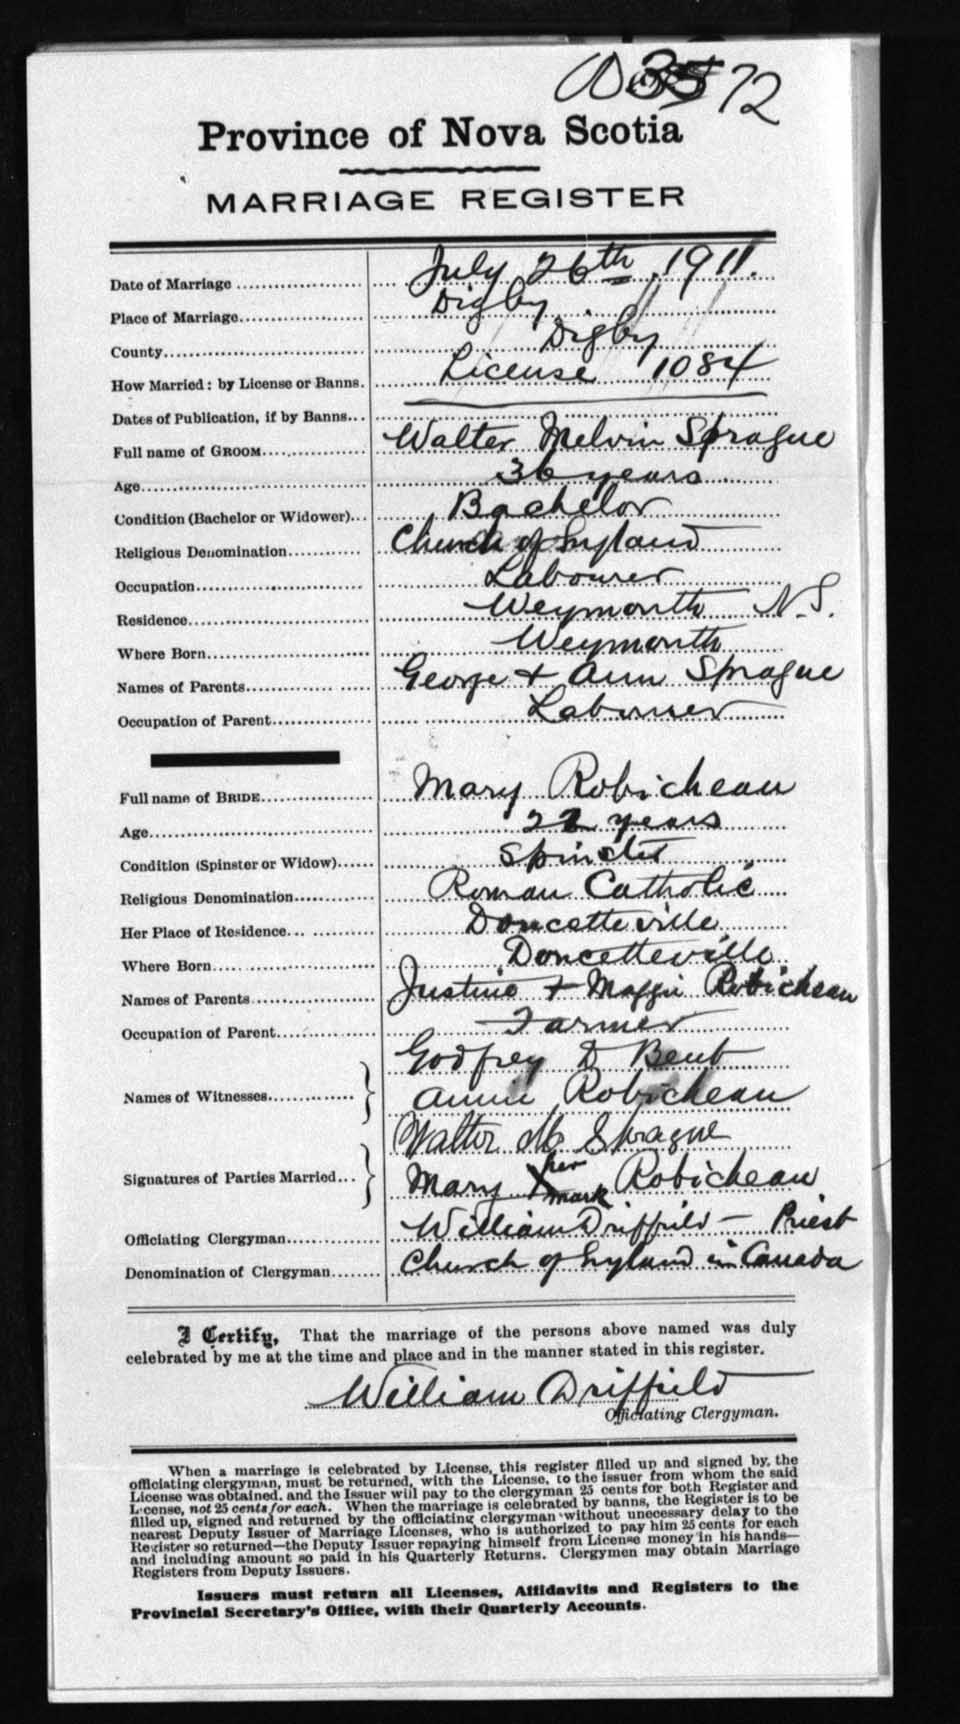 72
Province of Nova Scotia
MARRIAGE REGISTER
Date of Marriage July 26th 1911.
Place of Marriage Digby
County Digby
How Married: by License or Banns. License 1084
Dates of Publication, if by Banns
Full name of GROOM Walter Melvin Sprague
Age 36 years
Condition (Bachelor or Widower) Bachelor
Religious Denomination Church of England
Occupation Labourer
Residence Weymouth N.S.
Where Born Weymouth
Names of Parents George + Ann Sprague
Occupation of Parent Labourer
Full name of BRIDE Mary Robicheau
Age 22 years
Condition (Spinster or Widow) Spinster
Religious Denomination Roman Catholic
Her Place of Residence Doucetteville
Where Born Doucetteville
Names of Parents Justino + Maggie Robicheau
Occupation of Parent Farmer
Godfrey D Bent
Names of Witnesses Annie Robicheau
Walter M Sprague
Signatures of Parties Married Mary X her mark Robicheau
Officiating Clergyman William Driffield – Priest
Denomination of Clergyman Church of England in Canada
I Certify, That the marriage of the persons above named was duly
celebrated by me at the time and place and in the manner stated in this register.
William Driffield
Officiating Clergyman.
When a marriage is celebrated by License, this register filled up and signed by, the
officiating clergyman, must be returned, with the License, to the issuer from whom the said
License was obtained, and the Issuer will pay to the clergyman 25 cents for both Register and
License, not 25 cents for each. When the marriage is celebrated by banns, the Register is to be
filled up, signed and returned by the officiating clergyman without unnecessary delay to the
nearest Deputy Issuer of Marriage Licenses, who is authorized to pay him 25 cents for each
Register so returned—the Deputy Issuer repaying himself from License money in his hands—
and including amount so paid in his Quarterly Returns. Clergymen may obtain Marriage
Registers from Deputy Issuers.
Issuers must return all Licenses, Affidavits and Registers to the
Provincial Secretary's Office, with their Quarterly Accounts.